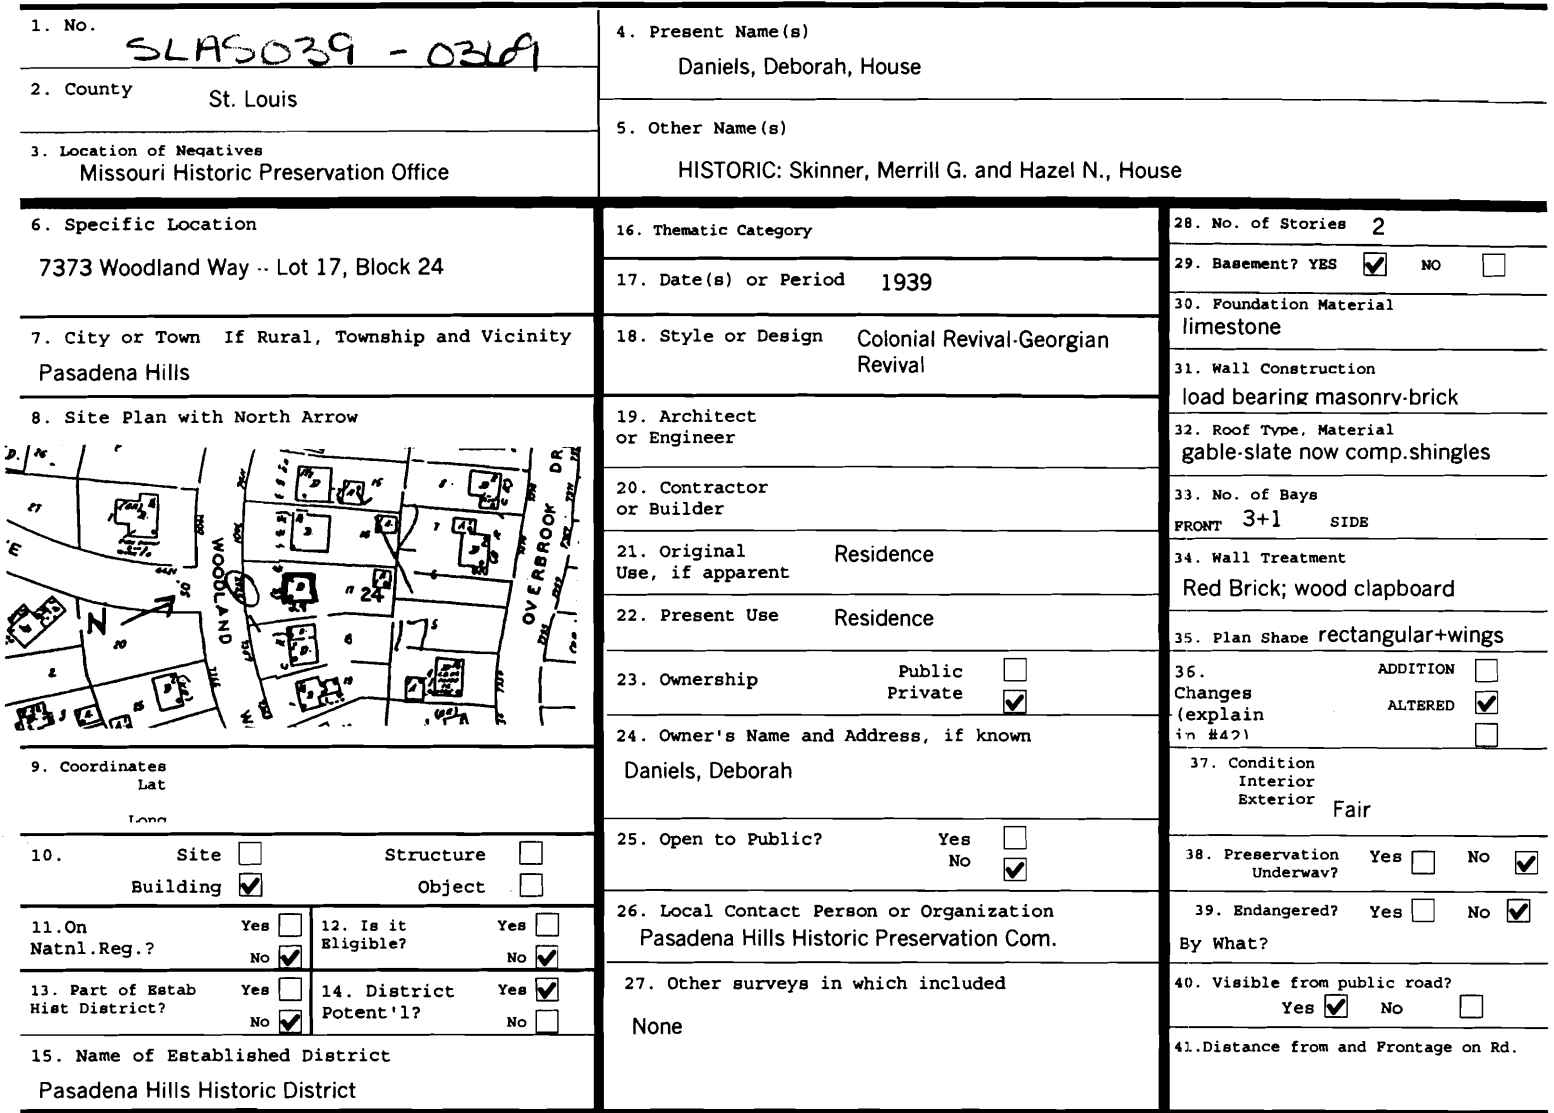 1. No.
SLAS039 - 0369
2. County
St. Louis
3. Location of Negatives
Missouri Historic Preservation Office
4. Present Name(s)
Daniels, Deborah, House
5. Other Name(s)
HISTORIC: Skinner, Merrill G. and Hazel N., House
6. Specific Location
7373 Woodland Way -- Lot 17, Block 24
7. City or Town If Rural, Township and Vicinity
Pasadena Hills
8. Site Plan with North Arrow
WOODLAND
OVERBROOK DR
24
N
9. Coordinates
Lat
Long
10. Site Structure
Building Object
11.On Yes
Natnl.Reg.? No
12. Is it Yes
Eligible? No
13. Part of Estab Yes
Hist District? No
14. District Yes
Potent'l? No
15. Name of Established District
Pasadena Hills Historic District
16. Thematic Category
17. Date(s) or Period 1939
18. Style or Design Colonial Revival-Georgian
Revival
19. Architect
or Engineer
20. Contractor
or Builder
21. Original Residence
Use, if apparent
22. Present Use Residence
23. Ownership Public
Private
24. Owner's Name and Address, if known
Daniels, Deborah
25. Open to Public? Yes
No
26. Local Contact Person or Organization
Pasadena Hills Historic Preservation Com.
27. Other surveys in which included
None
28. No. of Stories 2
29. Basement? YES NO
30. Foundation Material
limestone
31. Wall Construction
load bearing masonry-brick
32. Roof Type, Material
gable-slate now comp.shingles
33. No. of Bays
FRONT 3+1 SIDE
34. Wall Treatment
Red Brick; wood clapboard
35. Plan Shape rectangular+wings
36. ADDITION
Changes
(explain ALTERED
in #42)
37. Condition
Interior
Exterior Fair
38. Preservation Yes No
Underway?
39. Endangered? Yes No
By What?
40. Visible from public road?
Yes No
41.Distance from and Frontage on Rd.